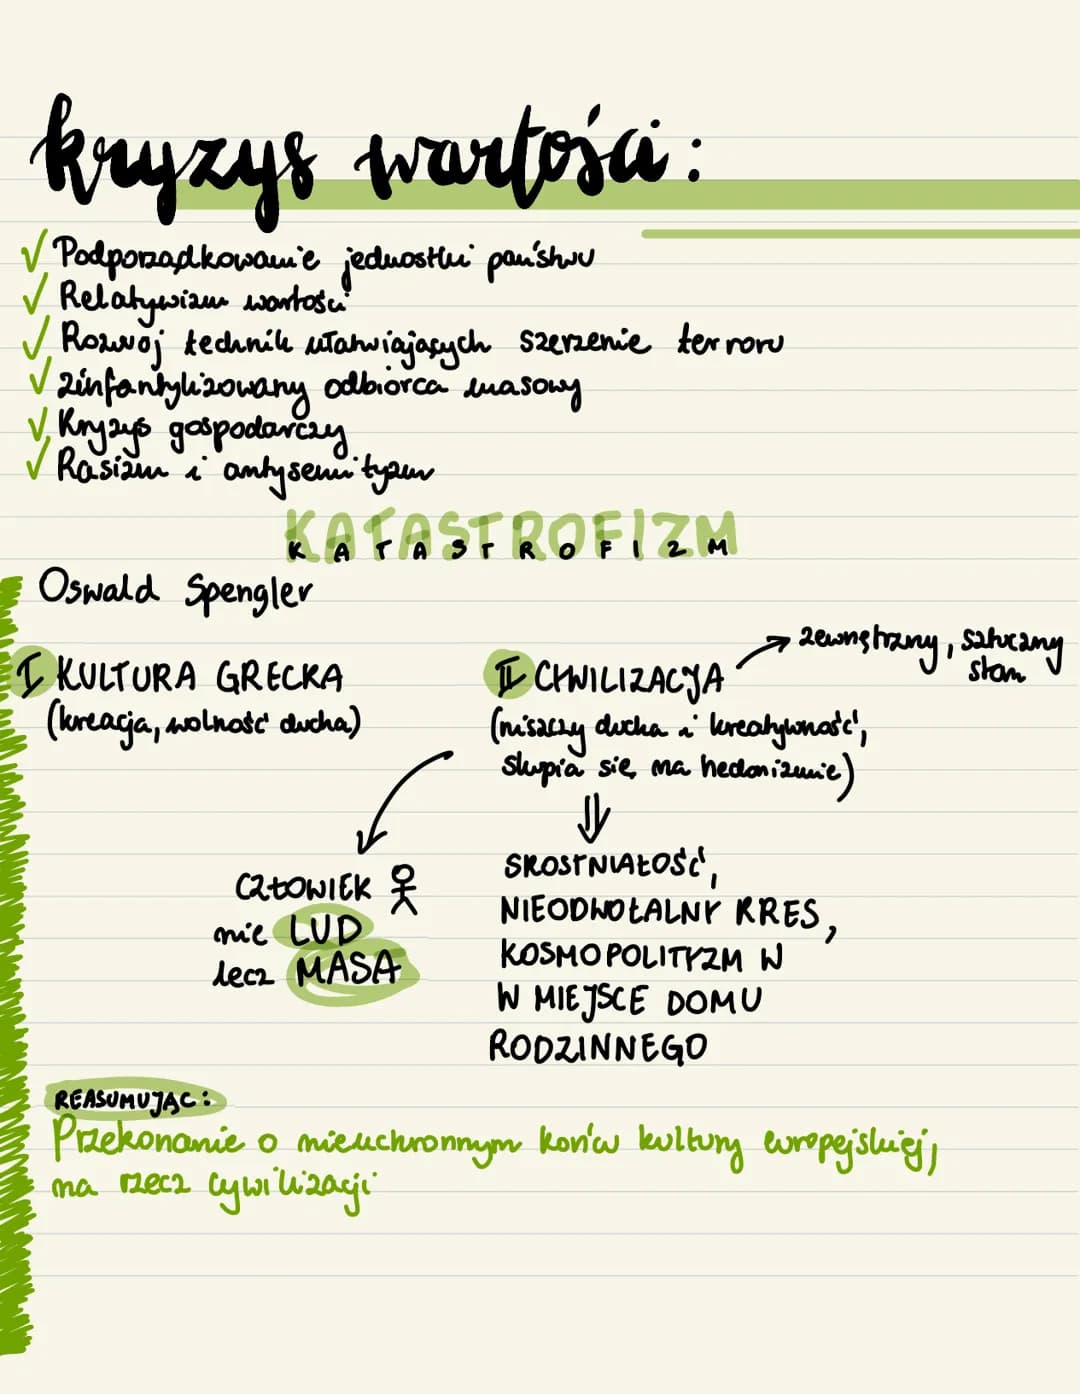 kryzys wartości:
Podporządkowanie jednostki państwu
Relatywizm wartości
Rozwój technik ułatwiających szerzenie terroru
zinfantylizowany odbiorca masowy
Kryzys gospodarczy
Rasizm i antysemityzm
KATASTROFIZM
KATASTROFIZM
Oswald Spengler
zewnętrzny, sztuczny
stan
I KULTURA GRECKA
II CYWILIZACJA
(kreacja, wolność ducha)
(niszczy ducha i kreatywność,
skupia się na hedonizmie)
SKOSTNIAŁOŚĆ,
CZŁOWIEK
nie LUD
NIEODWOŁALNY KRES,
lecz MASA
KOSMOPOLITYZM W
W MIEJSCE DOMU
RODZINNEGO
REASUMUJĄC:
Przekonanie o nieuchronnym końcu kultury europejskiej,
na rzecz cywilizacji